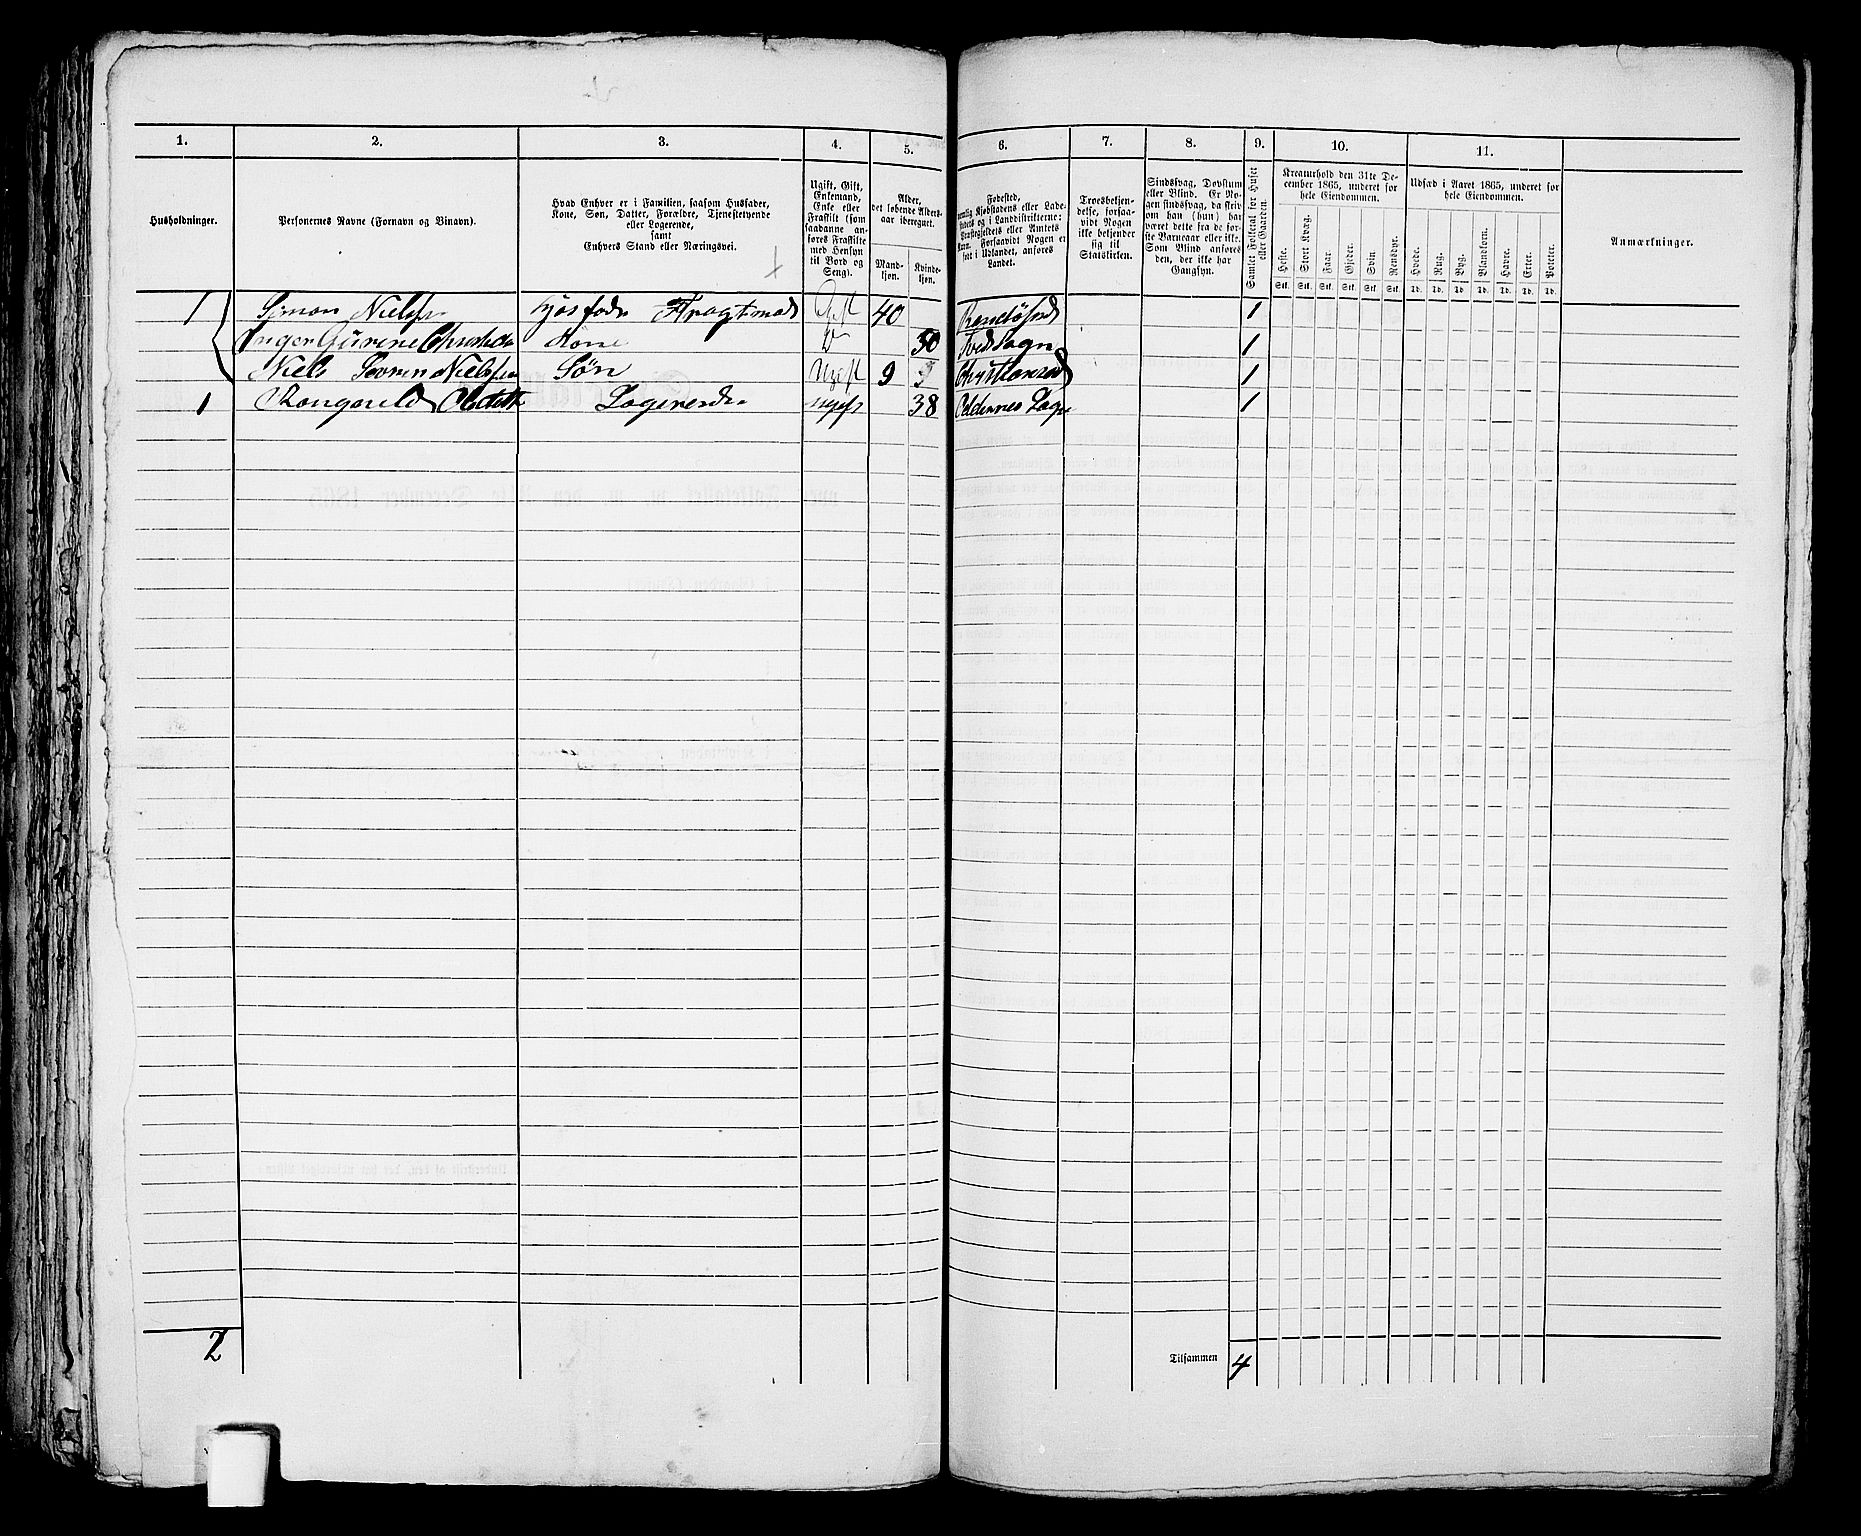 1. 2. 3. 4. 5. 6. 7. 8. 9. 10. 11.
Husholdninger.
Personernes Navne (Fornavn og Binavn).
Hvad Enhver er i Familien, saasom Husfader,
Kone, Søn, Datter, Forældre, Tjenestetyende
eller Logerende,
samt
Enhvers Stand eller Næringsvei.
Ugift, Gift,
Enkemand,
Enke eller
Fraskilt (som
saadanne an-
føres Fraskilte
med Hensyn
til Bord og
Seng).
Alder,
det løbende Alders-
aar iberegnet.
Mand-
kjøn.
Kvinde-
kjøn.
Fødested,
Kjøbstadens eller Lade-
stedets og i Landdistrikterne:
Præstegjeldets eller Amtets
Navn. Forsaavidt Nogen er
født i Udlandet, anføres
Landet.
Troesbekjen-
delse, forsaa-
vidt Nogen
ikke bekjender
sig til
Statskirken.
Sindssvag, Døvstum
eller Blind. Er No-
gen sindssvag, da skriv
om han (hun) har
været dette fra de før-
ste Barneaar eller ikke.
Som Blind anføres
den, der ikke har
Gangsyn.
Samlet Folketal for Huset
eller Gaarden.
Kreaturhold den 31te De-
cember 1865, underet for
hele Eiendommen.
Heste. Stort Kvæg. Faar. Gjeder. Svin Rensdyr.
Stk. Stk. Stk. Stk. Stk. Stk.
Udsæd i Aaret 1865, underet for
hele Eiendommen.
Hvede. Rug. Byg. Blandkorn. Havre. Erter. Poteter.
Td. Td. Td. Td. Td. Td. Td.
Anmærkninger.
1 Simon Nielsen Fragtmand Gift 40 1
Inger Gurine Kone 1
Niels Søren Nielsen Søn Ugift 9 1
1 Logerende Ugift 38 1
2
Tilsammen 4